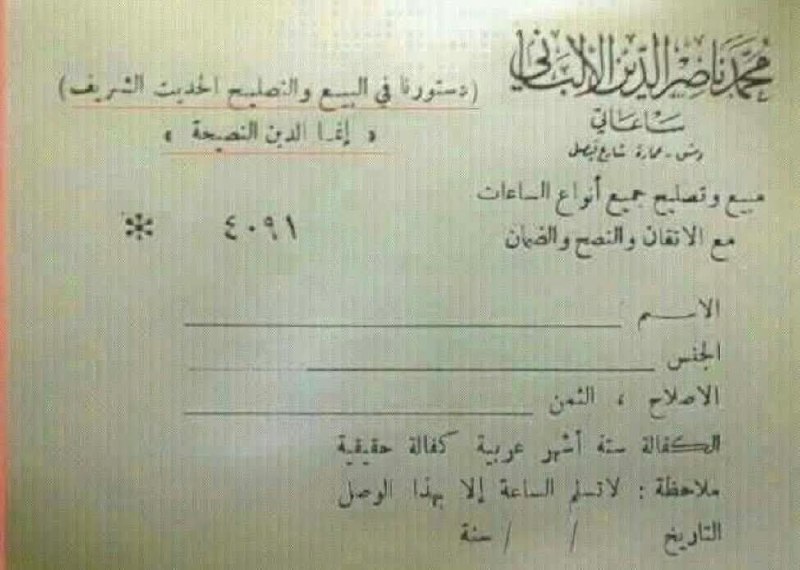 محمد ناصر الدين الألباني
ساعاتي
دمشق - عمارة شارع فيصلي
(دستورنا في البيع والتصليح الحديث الشريف)
« إنما الدين النصيحة »
مبيع وتصليح جميع أنواع الساعات
مع الاتقان والنصح والضمان
٤٠٩١ *
الاسم
الجنس
الاصلاح ، الثمن
الكفالة ستة أشهر عربية كفالة حقيقية
ملاحظة : لا تسلم الساعة إلا بهذا الوصل
التاريخ / / سنة